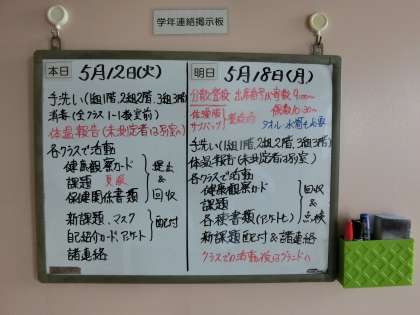 学年連絡掲示板
本日 5月12日(火)
手洗い(1組1階、2組2階、3組3階)
消毒(全クラス1-1教室前)
体温報告(未測定者は別室へ)
各クラスで活動
健康観察カード
課題
保健関係書類
提出
&
回収
新課題、マスク
自己紹介カード、アンケート
配付
諸連絡
明日 5月18日(月)
分散登校 出席番号 奇数 9:00〜
偶数 10:30〜
体操服
サブバッグ
タオル・水筒も必要
手洗い(1組1階、2組2階、3組3階)
体温報告(未測定者は別室)
各クラスで活動
健康観察カード
課題
各種書類(アンケート)
回収
&
点検
新課題配付&諸連絡
クラスでの活動後はグランドへ